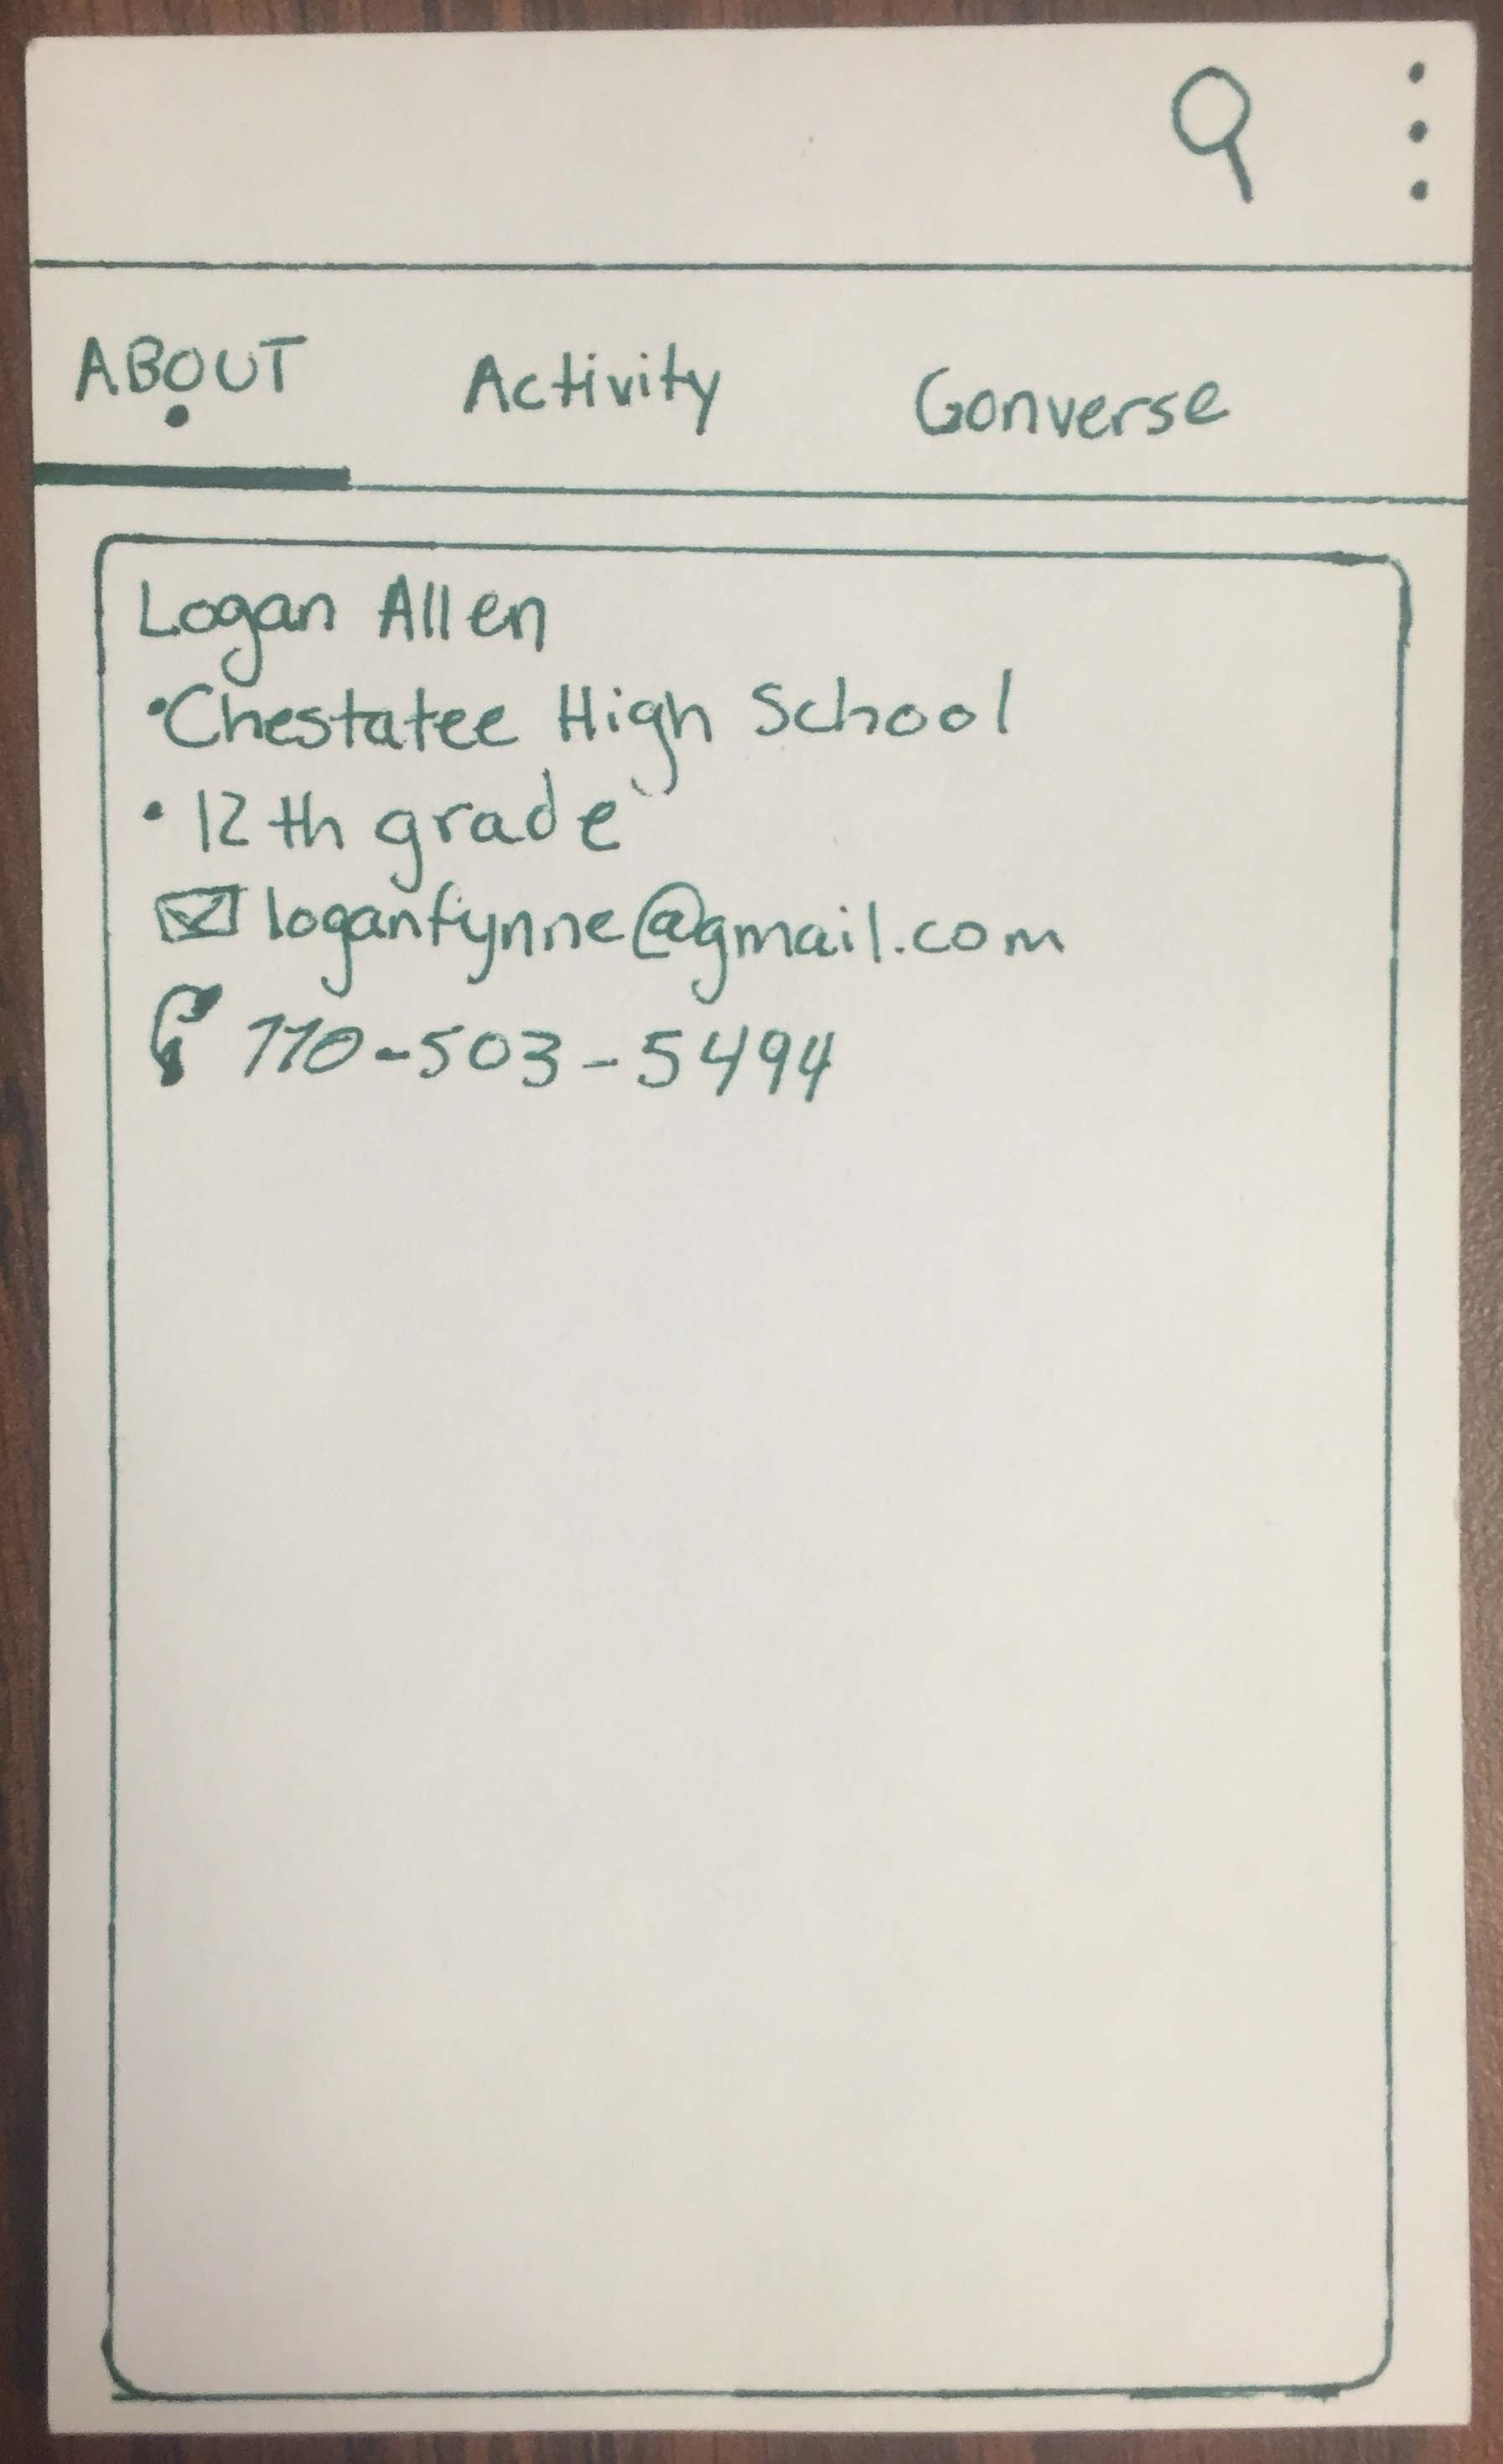 ABOUT Activity Converse
Logan Allen
•Chestatee High School
• 12th grade
loganfynne@gmail.com
770-503-5494